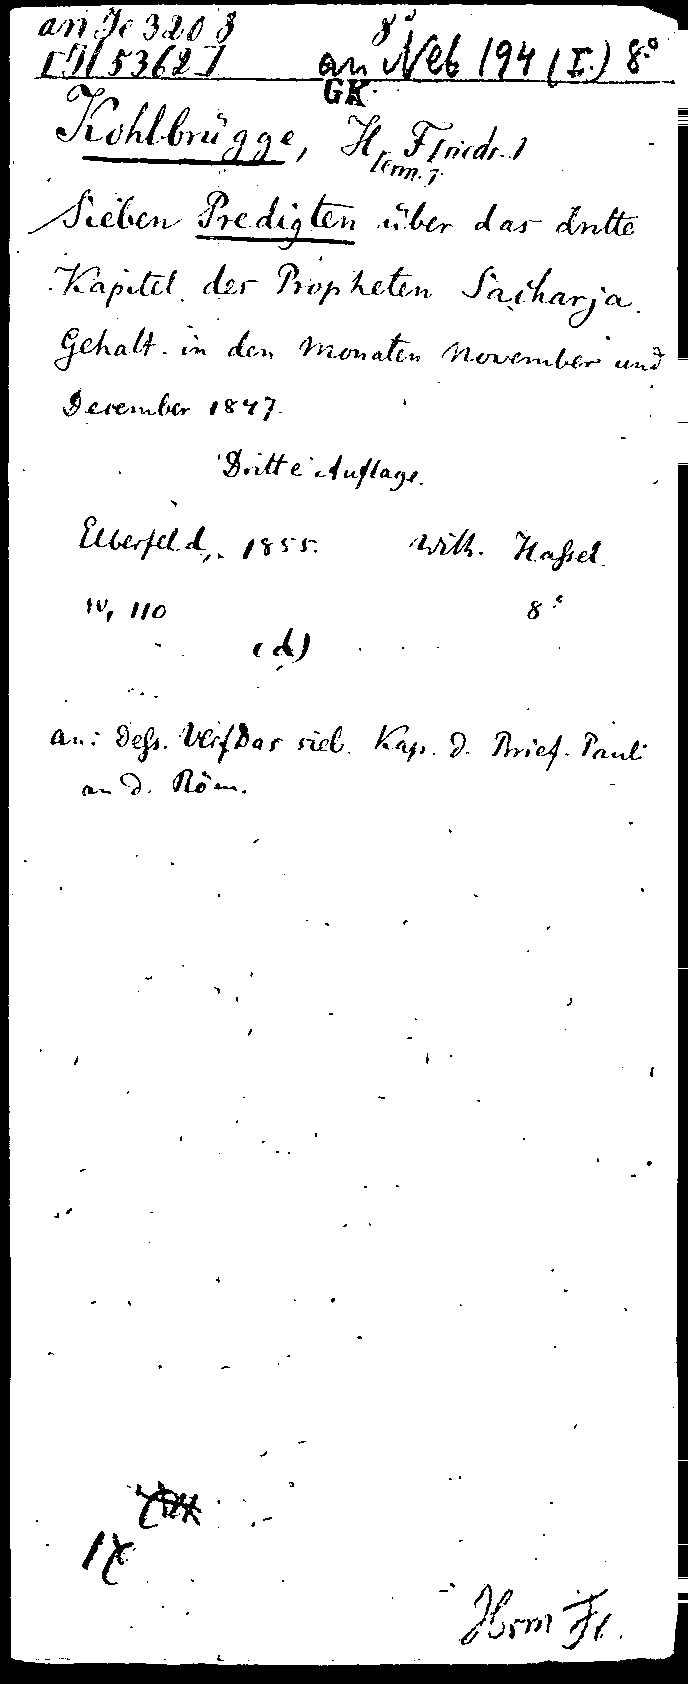 an Je 320 8 8°
[J15362] an Neb 194 (I.) 8°
GK
Kohlbrügge, H[erm.] F[riedr.]
Sieben Predigten über das dritte
Kapitel des Propheten Sacharja.
Gehalt. in den Monaten November und
December 1847.
Dritte Auflage.
Elberfeld, 1855. Wilh. Hassel.
IV, 110 8°
(d)
an: Dess. Verf. Das sieb. Kap. d. Brief. Pauli
an d. Röm.
Herm Fr.